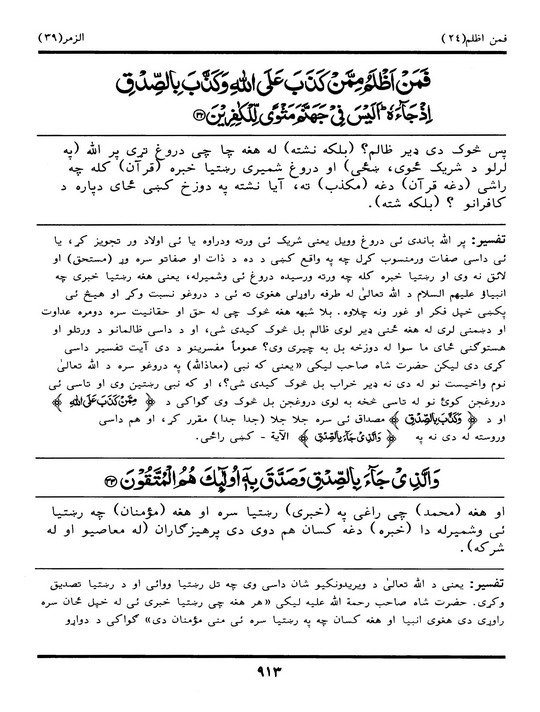 فمن اظلم(٢٤)
الزمر(٣٩)
فَمَنْ اَظْلَمُ مِمَّنْ كَذَبَ عَلَى اللّٰهِ وَكَذَّبَ بِالصِّدْقِ
اِذْ جَآءَهٗ ؕ اَلَيْسَ فِيْ جَهَنَّمَ مَثْوًى لِّلْكٰفِرِيْنَ ﴿٣٢﴾
پس څوک دی ډیر ظالم؟ (بلکه نشته) له هغه چا چی دروغ تړی پر الله (په
لرلو د شریک ځوی، ښځی) او دروغ شمیری رښتیا خبره (قرآن) کله چه
راشی (دغه قرآن) دغه (مکذب) ته، آیا نشته په دوزخ کښی ځای دپاره د
کافرانو ؟ (بلکه شته).
تفسیر: پر الله باندی ئی دروغ وویل یعنی شریک ئی ورته ودراوه یا ئی اولاد ور تجویز کړ، یا
ئی داسی صفات ورمنسوب کړل چه په واقع کښی د ده د ذات او صفاتو سره وړ (مستحق) او
لائق نه وی او رښتیا خبره کله چه ورته ورسیده دروغ ئی وشمیرله، یعنی هغه رښتیا خبری چه
انبیاؤ علیهم السلام د الله تعالیٰ له طرفه راوړلی هغوی ته ئی د دروغو نسبت وکړ او هیڅ ئی
پکښی خپل فکر او غور ونه چلاوه. بلا شبهه هغه څوک چی له حق او حقانیت سره دومره عداوت
او دښمنی لری له هغه ځنی ډیر لوی ظالم بل څوک کیدی شی، او د داسی ظالمانو د ورتلو او
هستوګنی ځای ما سوا له دوزخه بل به چیری وی؟ عموماً مفسرینو د دی آیت تفسیر داسی
کړی دی لیکن حضرت شاه صاحب لیکی «یعنی که نبی (معاذالله) په دروغو سره د الله تعالیٰ
نوم واخیست نو له دی نه ډیر خراب بل څوک کیدی شی؟، او که نبی رښتین وی او تاسی ئی
دروغجن کوئ نو له تاسی څخه به لوی دروغجن بل څوک وی ګواکی د ﴿ مِمَّنْ كَذَبَ عَلَى اللّٰهِ ﴾
او د ﴿ وَكَذَّبَ بِالصِّدْقِ ﴾ مصداق ئی سره جلا جلا (جدا جدا) مقرر کړ، او هم داسی
وروسته له دی نه په ﴿ وَالَّذِيْ جَآءَ بِالصِّدْقِ ﴾ الآیة - کښی راځی.
وَالَّذِيْ جَآءَ بِالصِّدْقِ وَصَدَّقَ بِهٖٓ اُولٰٓئِكَ هُمُ الْمُتَّقُوْنَ ﴿٣٣﴾
او هغه (محمد) چی راغی په (خبری) رښتیا سره او هغه (مؤمنان) چه رښتیا
ئی وشمیرله دا (خبره) دغه کسان هم دوی دی پرهیزګاران (له معاصیو او له
شرکه).
تفسیر: یعنی د الله تعالیٰ د ویریدونکیو شان داسی وی چه تل رښتیا ووائی او د رښتیا تصدیق
وکړی. حضرت شاه صاحب رحمة الله علیه لیکی «هر هغه چی رښتیا خبری ئی له خپل ځان سره
راوړی دی هغوی انبیا او هغه کسان چه په رښتیا سره ئی منی مؤمنان دی» ګواکی د دواړو
٩١٣